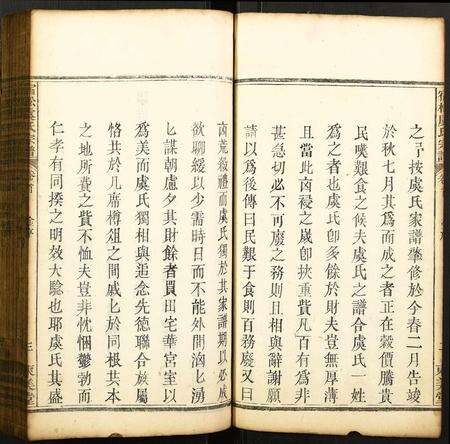 之曰按虞氏家譜肇修於今春二月告竣
於秋七月其爲而成之者正在穀價騰貴
民嘆艱食之候夫虞氏之譜合虞氏一姓
者也虞氏卽多餘於財夫豈無厚薄
且當此南祲之歲卽挾重貲凡百有爲非
甚急切必不可廢之務則且相與辭謝願
以爲後傳曰民艱于食則百務廢又曰
凶荒殺禮而虞氏獨於其家譜期以必成
欲聊緩以少需時日而不能外間滔匕湧
匕謀朝慮夕其財餘者買田宅華宮室以
爲美而虞氏獨相與追念先德聯合族屬
恪共於几席樽俎之間戚匕於同根共本
之地所費之貲不恤夫豈非忱悃鬱勃而
仁孝有同揆之明效大驗也耶虞氏其盛
三 東美堂